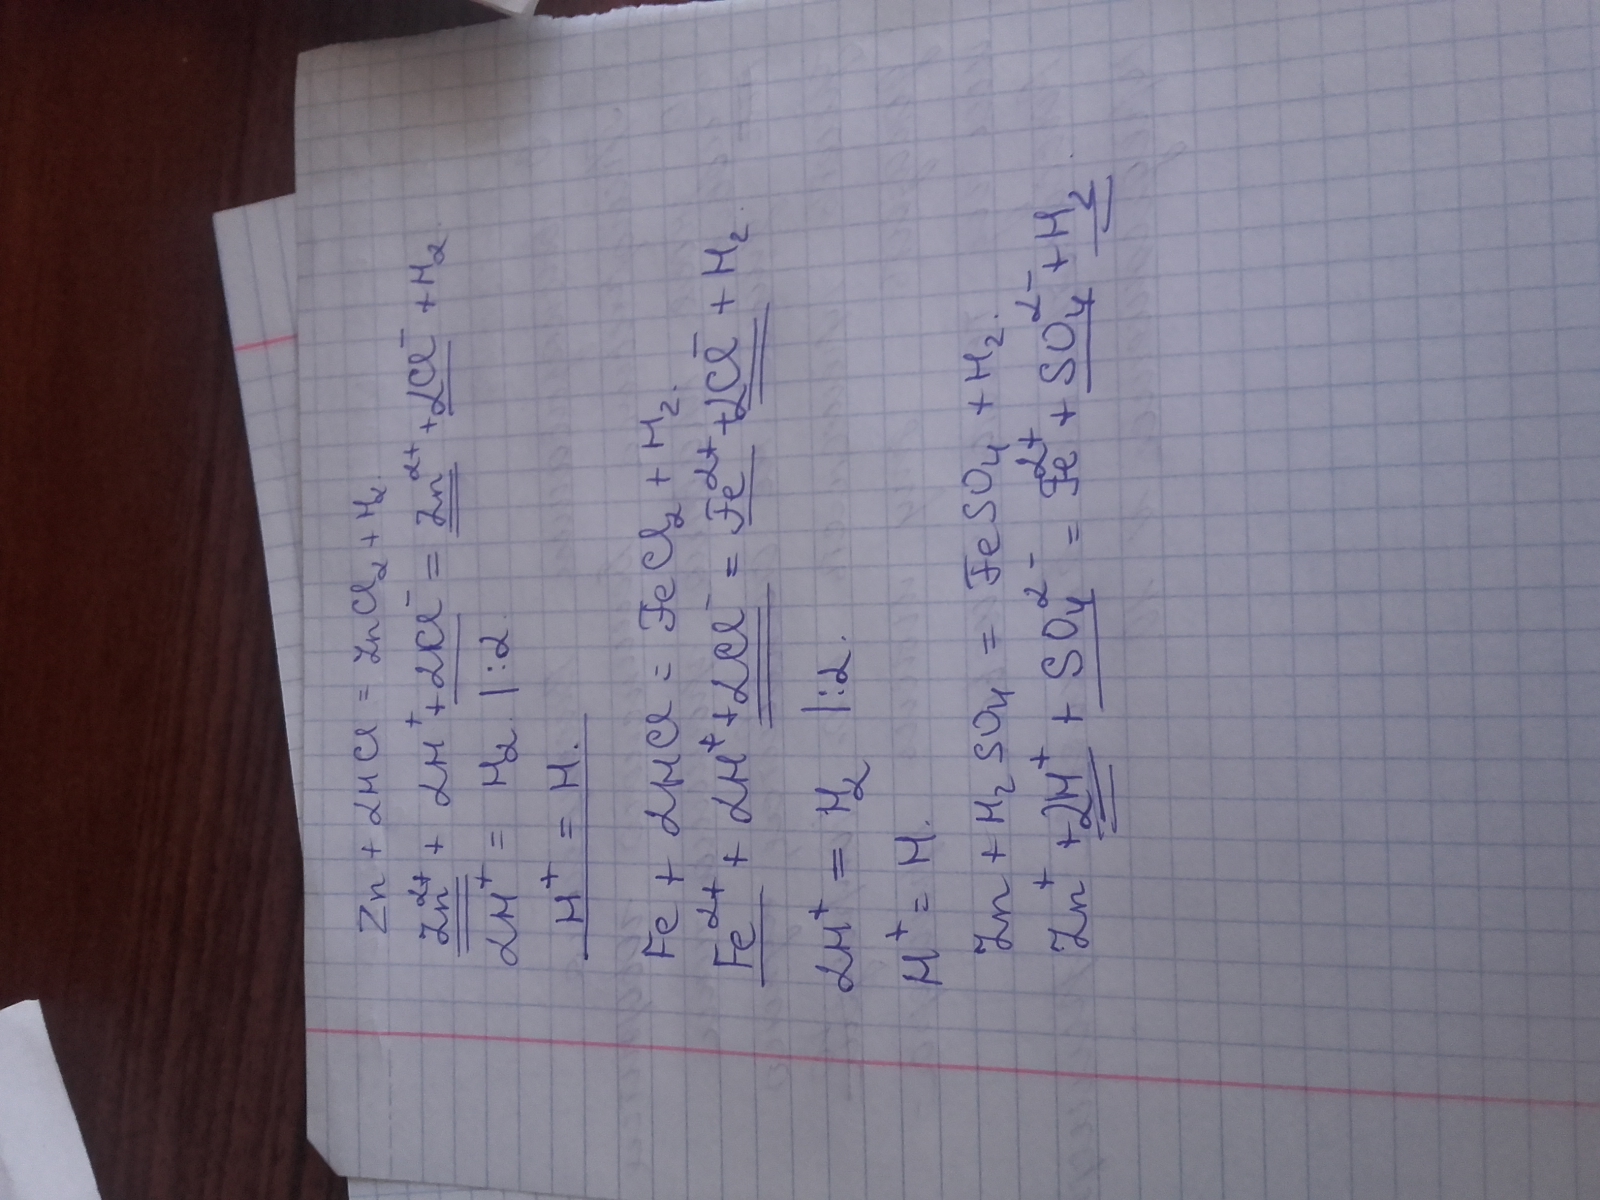 Zn + 2HCl = ZnCl₂ + H₂.
Zn²⁺ + 2H⁺ + 2Cl⁻ = Zn²⁺ + 2Cl⁻ + H₂.
2H⁺ = H₂ |:2.
H⁺ = H.
Fe + 2HCl = FeCl₂ + H₂.
Fe²⁺ + 2H⁺ + 2Cl⁻ = Fe²⁺ + 2Cl⁻ + H₂.
2H⁺ = H₂ |:2.
H⁺ = H.
Zn + H₂SO₄ = FeSO₄ + H₂.
Zn⁺ + 2H⁺ + SO₄²⁻ = Fe²⁺ + SO₄²⁻ + H₂